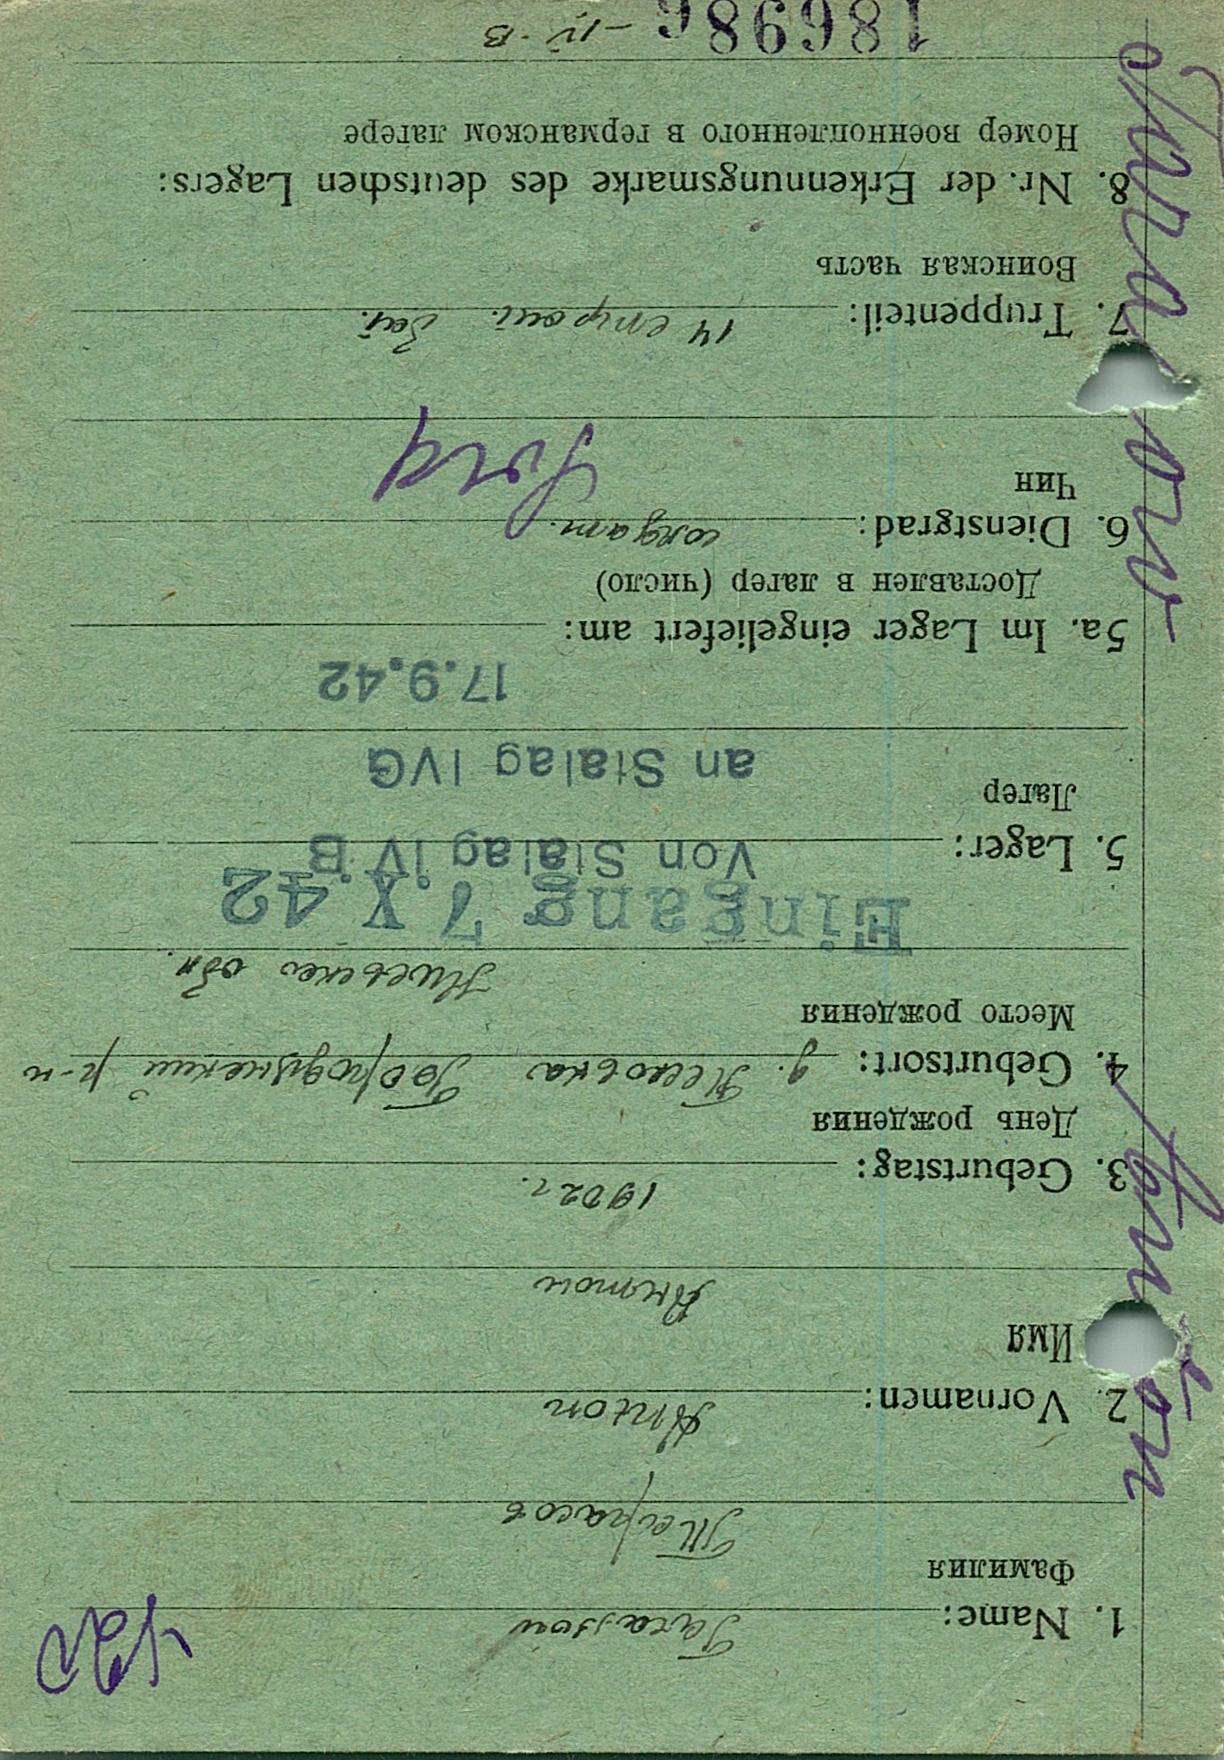 420
1. Name: Tarassow
Фамилия
Тарасов
2. Vornamen: Anton
Имя
Антон
3. Geburtstag: 1902 г.
День рождения
4. Geburtsort: д. р-н
Место рождения
обл.
Eingang 7.X.42
5. Lager: Von Stalag IV B
Лагер
an Stalag IVG
17.9.42
5a. Im Lager eingeliefert am:
Доставлен в лагер (число)
6. Dienstgrad: солдат.
Чин
Sold
7. Truppenteil: 14 строй. бат.
Воинская часть
8. Nr. der Erkennungsmarke des deutschen Lagers:
Номер военнопленного в германском лагере
186986 - IV. B
Tarassow Anton